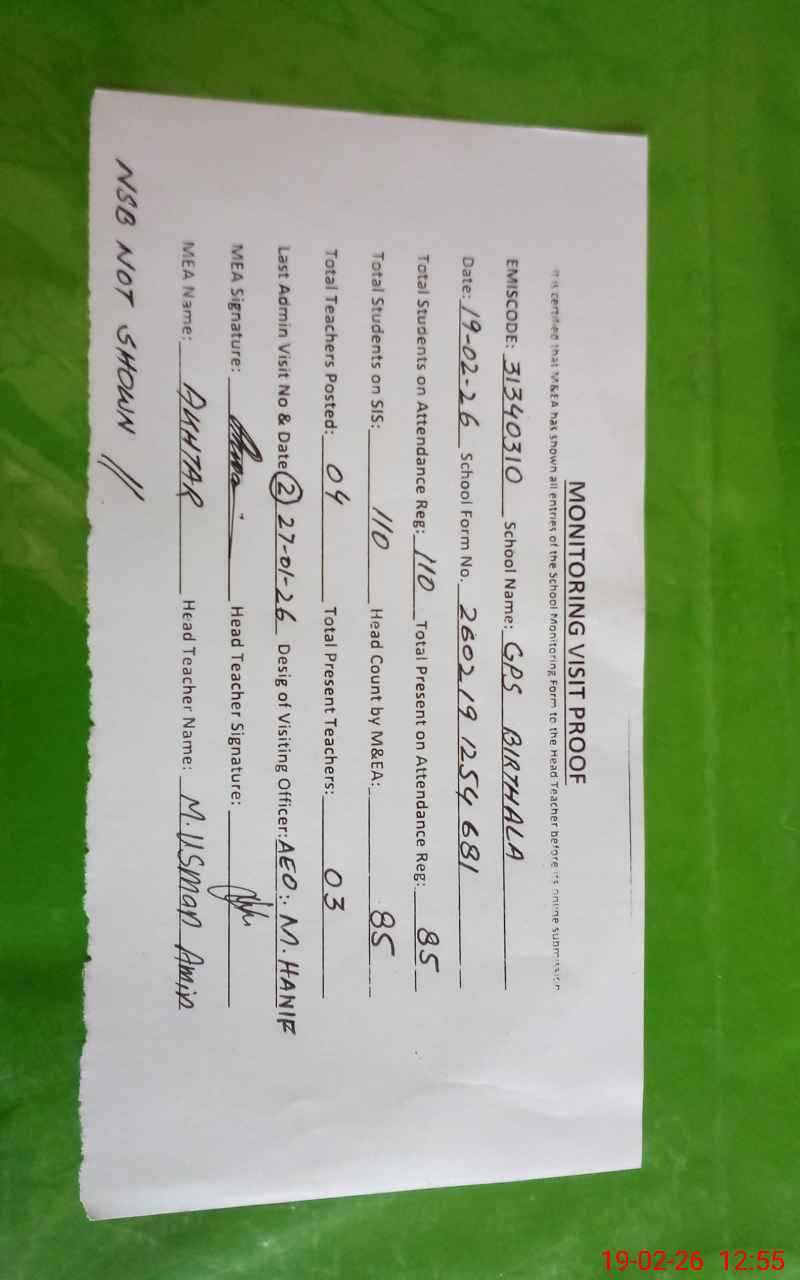 MONITORING VISIT PROOF
It is certified that M&EA has shown all entries of the School Monitoring Form to the Head Teacher before its online submission
EMISCODE: 31340310 School Name: GPS BIRTHALA
Date: 19-02-26 School Form No. 260219 1254 681
Total Students on Attendance Reg: 110 Total Present on Attendance Reg: 85
Total Students on SIS: 110 Head Count by M&EA: 85
Total Teachers Posted: 04 Total Present Teachers: 03
Last Admin Visit No & Date (2) 27-01-26 Desig of Visiting Officer: AEO:. M. HANIF
MEA Signature: Head Teacher Signature:
MEA Name: AKHTAR Head Teacher Name: M. Usman Amin
NSB NOT SHOWN //
19-02-26 12:55